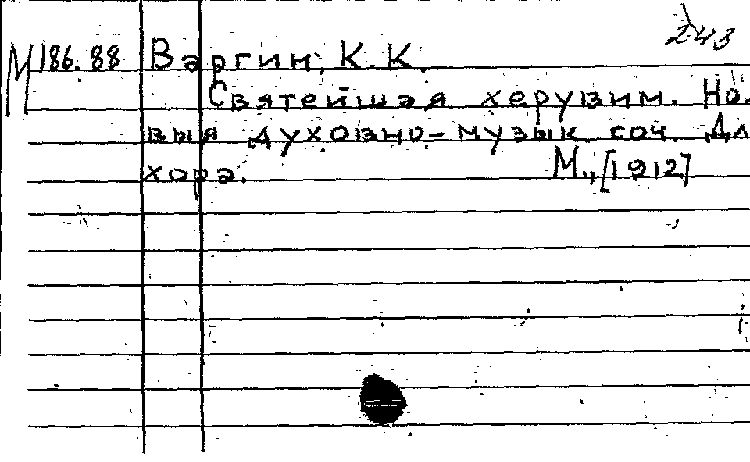 243
М 186.88 Варгин, К. К.
Святейшая херувим. Но-
выя духовно-музык. соч. Дл
хора. М., [1912]